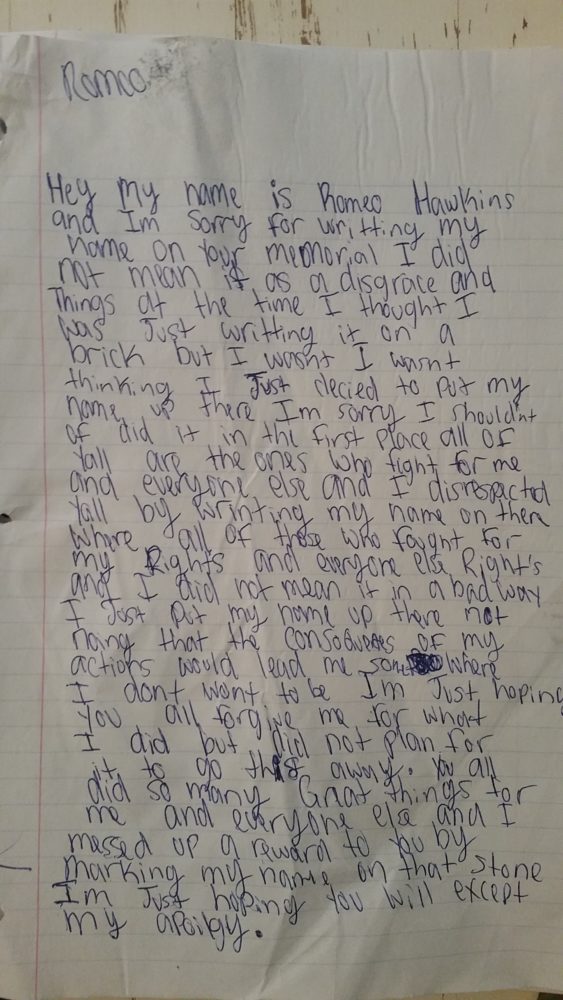 Romeo
Hey my name is Romeo Hawkins
and Im sorry for writting my
name on your memorial I did
not mean it as a disgrace and
Things at the time I thought I
was Just writting it on a
brick but I wasnt I wasnt
thinking I Just decied to put my
name up there Im sorry I shouldnt
of did it in the first place all of
yall are the ones who fight for me
and everyone else and I disrespected
yall by wrinting my name on there
where all of those who fought for
my Rights and everyone else Right's
and I did not mean it in a bad way
I Just put my name up there not
that the of my
actions would lead me some where
I dont wont to be Im Just hoping
you all forgive me for what
I did but did not plan for
it to go this away. You all
did so many Great things for
me and everyone else and I
messed up a reward to you by
marking my name on that stone
Im Just hoping you will except
my apoilgy.